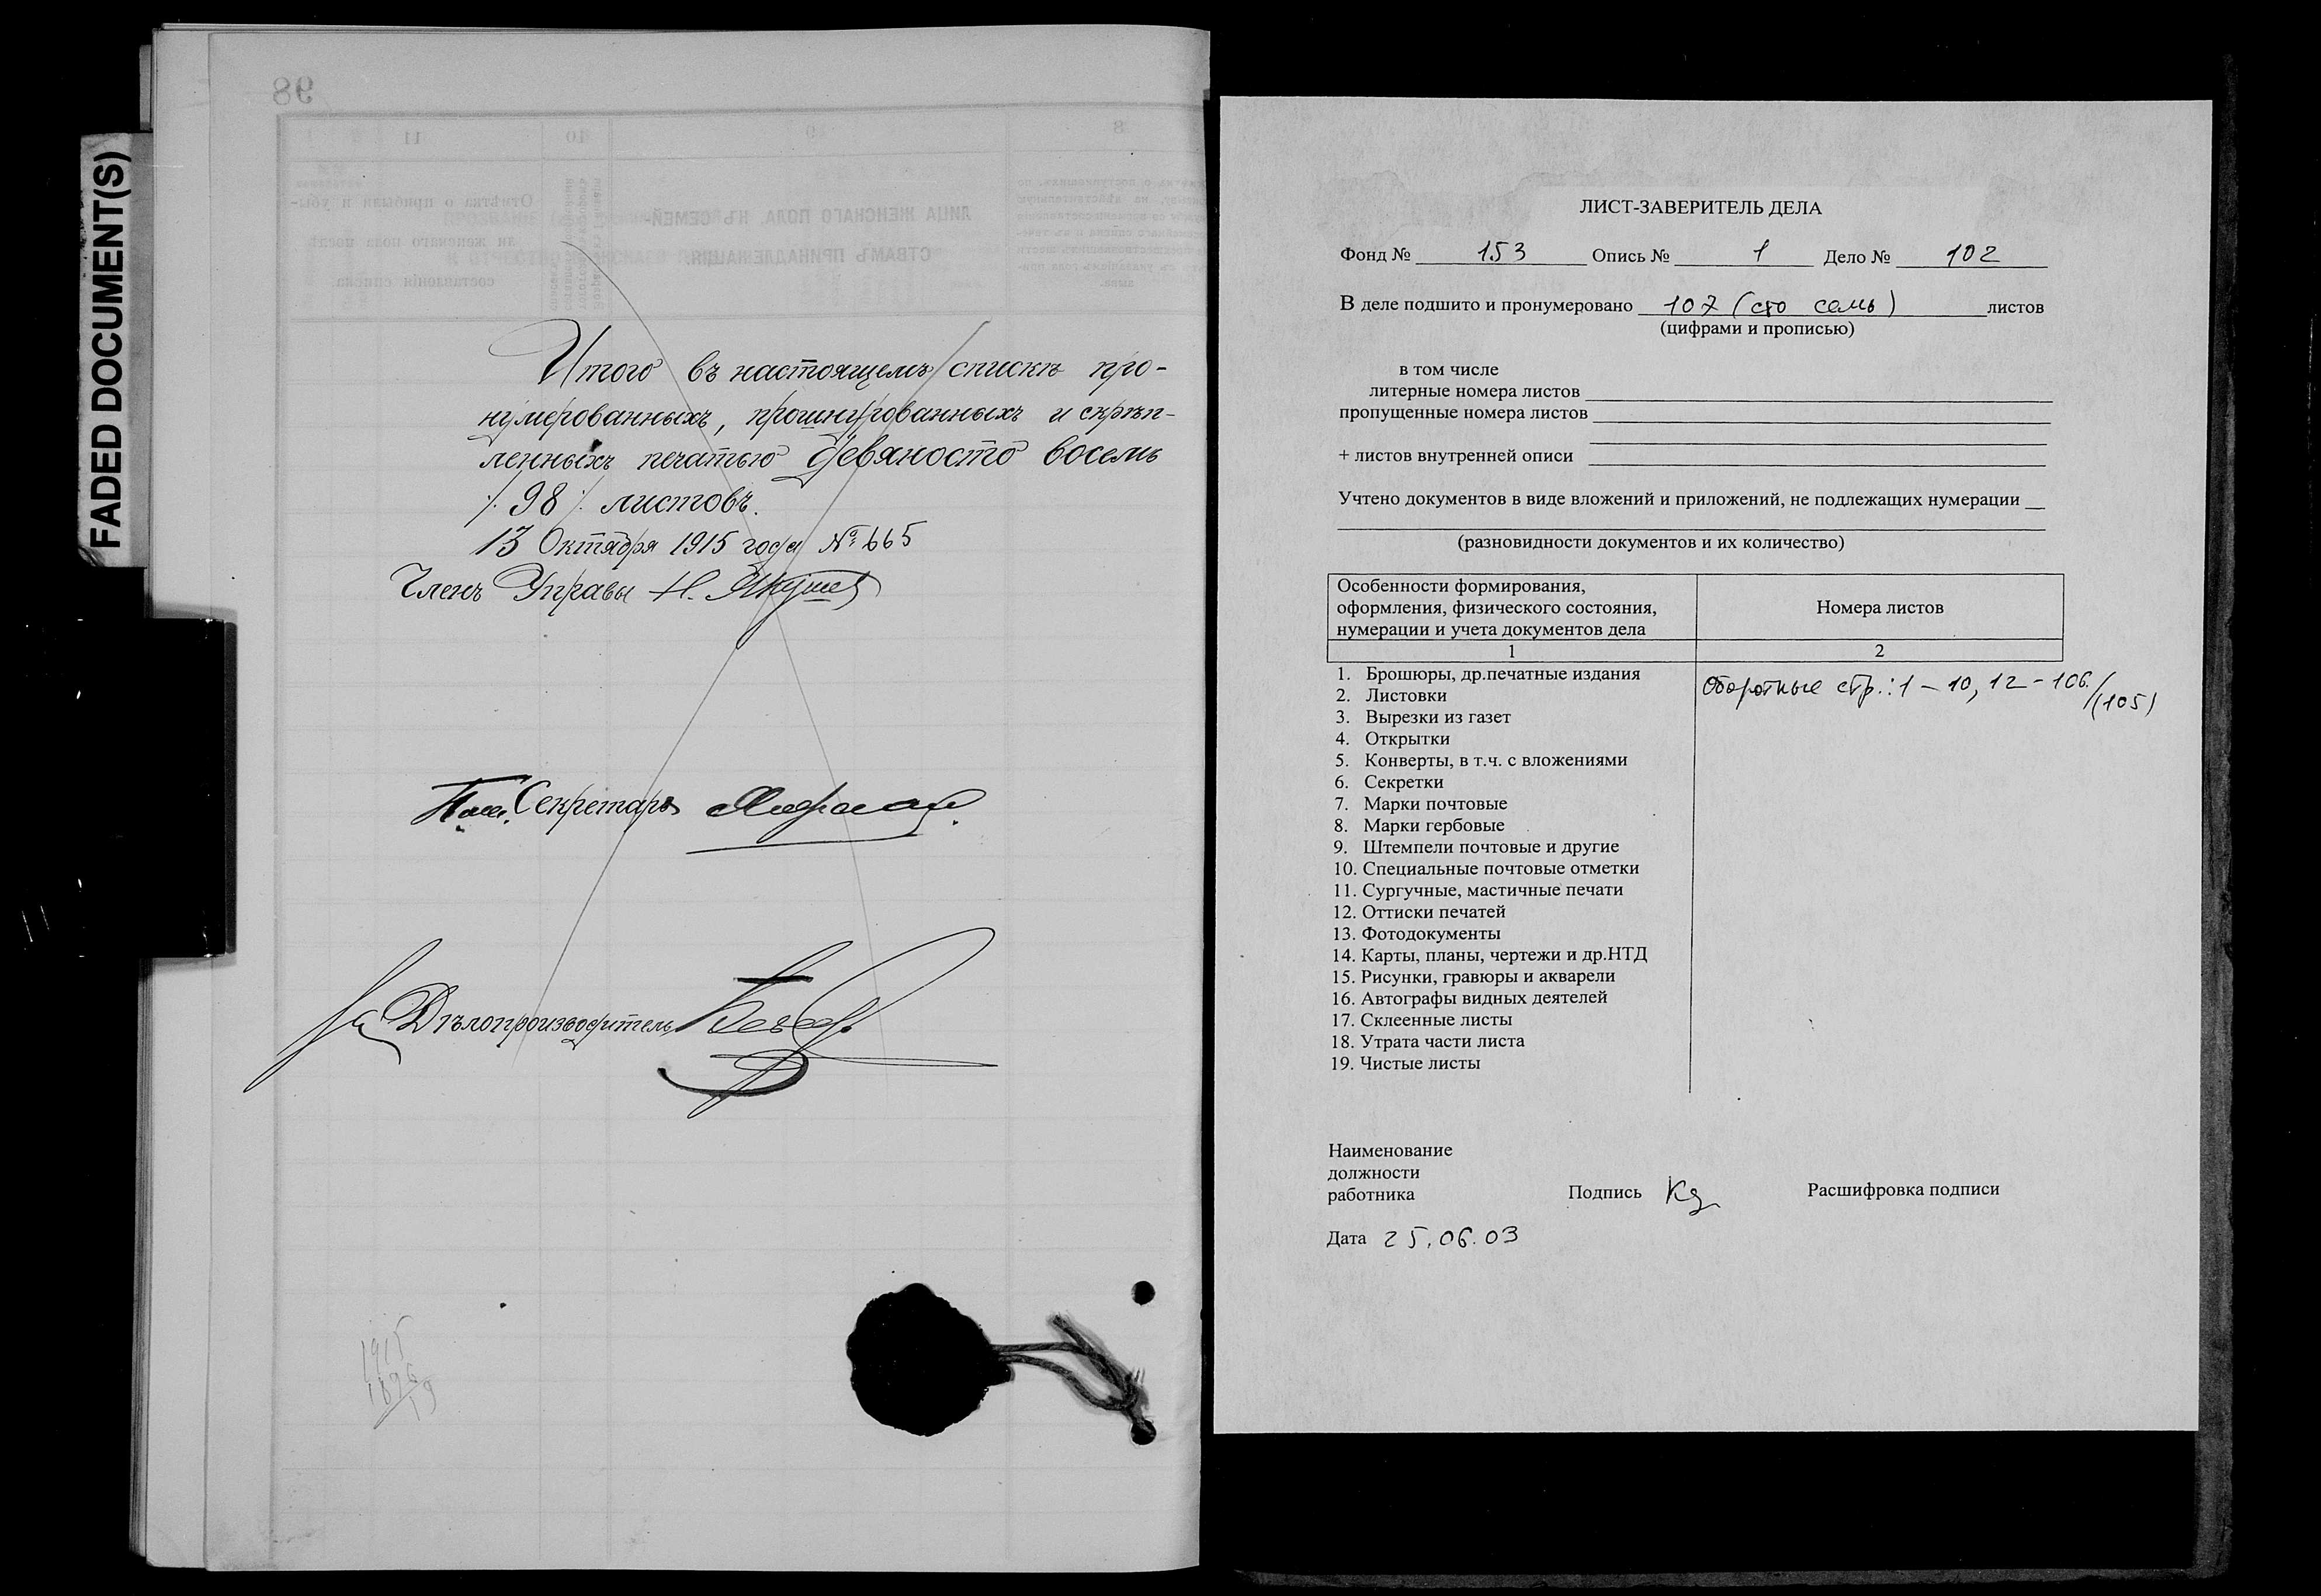 FADED DOCUMENT(S)
98
Итого въ настоящемъ спискѣ про-
нумерованныхъ, прошнурованныхъ и скрѣп-
ленныхъ печатью девяносто восемь
/. 98 ./. листовъ.
13 Октября 1915 года № 665
Членъ Управы Н.
Пом. Секретаря
За Дѣлопроизводитель
1915
1896
19
ЛИСТ-ЗАВЕРИТЕЛЬ ДЕЛА
Фонд № 153 Опись № 1 Дело № 102
В деле подшито и пронумеровано 107 (сто семь) листов
(цифрами и прописью)
в том числе
литерные номера листов
пропущенные номера листов
+ листов внутренней описи
Учтено документов в виде вложений и приложений, не подлежащих нумерации
(разновидности документов и их количество)
Особенности формирования,
оформления, физического состояния,
нумерации и учета документов дела
Номера листов
1 2
1. Брошюры, др.печатные издания
Оборотные стр.: 1 – 10, 12 - 106./(105)
2. Листовки
3. Вырезки из газет
4. Открытки
5. Конверты, в т.ч. с вложениями
6. Секретки
7. Марки почтовые
8. Марки гербовые
9. Штемпели почтовые и другие
10. Специальные почтовые отметки
11. Сургучные, мастичные печати
12. Оттиски печатей
13. Фотодокументы
14. Карты, планы, чертежи и др.НТД
15. Рисунки, гравюры и акварели
16. Автографы видных деятелей
17. Склеенные листы
18. Утрата части листа
19. Чистые листы
Наименование
должности
работника Подпись Расшифровка подписи
Дата 25.06.03